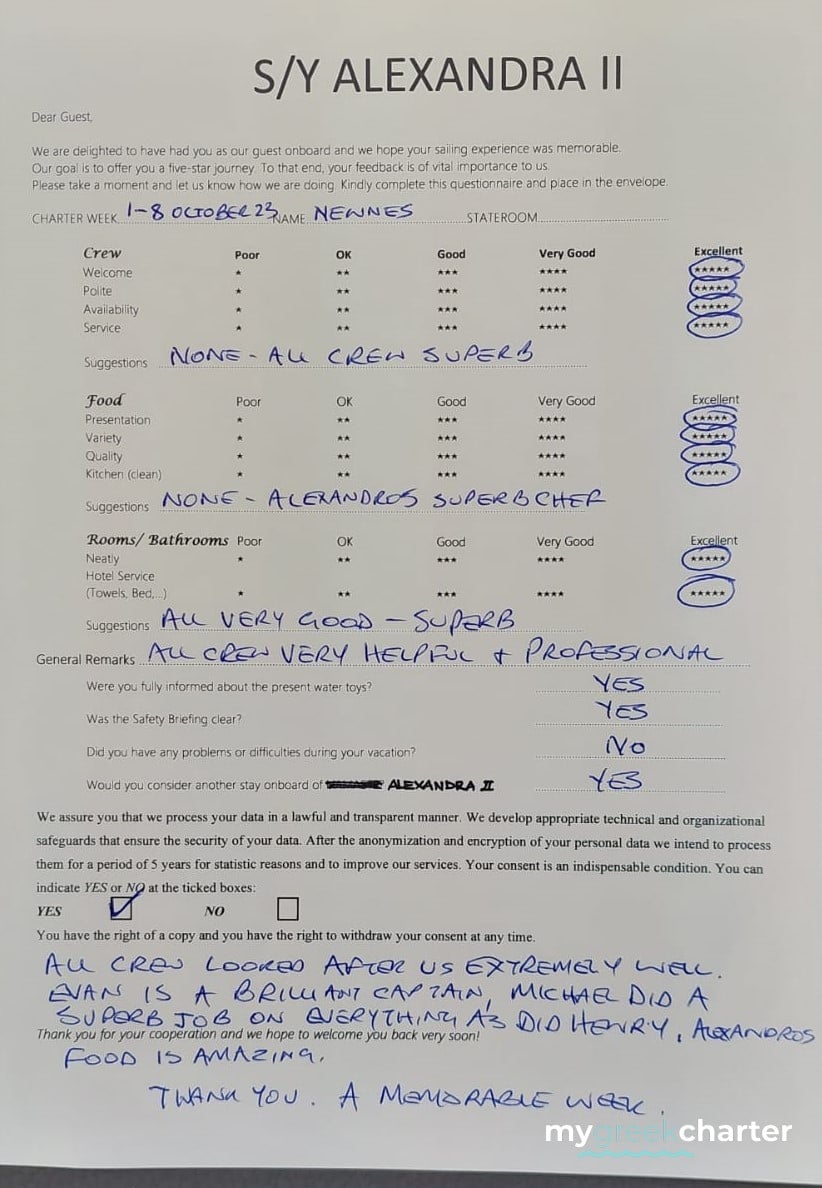 S/Y ALEXANDRA II
Dear Guest,
We are delighted to have had you as our guest onboard and we hope your sailing experience was memorable.
Our goal is to offer you a five-star journey. To that end, your feedback is of vital importance to us.
Please take a moment and let us know how we are doing. Kindly complete this questionnaire and place in the envelope.
CHARTER WEEK 1-8 OCTOBER 23 NAME NEWNES STATEROOM
Crew Poor OK Good Very Good Excellent
Welcome * ** *** **** *****
Polite * ** *** **** *****
Availability * ** *** **** *****
Service * ** *** **** *****
Suggestions NONE - ALL CREW SUPERB
Food Poor OK Good Very Good Excellent
Presentation * ** *** **** *****
Variety * ** *** **** *****
Quality * ** *** **** *****
Kitchen (clean) * ** *** **** *****
Suggestions NONE - ALEXANDROS SUPERB CHEF
Rooms/ Bathrooms Poor OK Good Very Good Excellent
Neatly * ** *** **** *****
Hotel Service
(Towels, Bed,...) * ** *** **** *****
Suggestions ALL VERY GOOD - SUPERB
General Remarks ALL CREW VERY HELPFUL + PROFESSIONAL
Were you fully informed about the present water toys? YES
Was the Safety Briefing clear? YES
Did you have any problems or difficulties during your vacation? NO
Would you consider another stay onboard of ALEXANDRA II YES
We assure you that we process your data in a lawful and transparent manner. We develop appropriate technical and organizational
safeguards that ensure the security of your data. After the anonymization and encryption of your personal data we intend to process
them for a period of 5 years for statistic reasons and to improve our services. Your consent is an indispensable condition. You can
indicate YES or NO at the ticked boxes:
YES NO
You have the right of a copy and you have the right to withdraw your consent at any time.
ALL CREW LOOKED AFTER US EXTREMELY WELL.
EVAN IS A BRILLIANT CAPTAIN, MICHAEL DID A
SUPERB JOB ON EVERYTHING AS DID HENRY, ALEXANDROS
Thank you for your cooperation and we hope to welcome you back very soon!
FOOD IS AMAZING.
THANK YOU. A MEMORABLE WEEK.
mygreekcharter